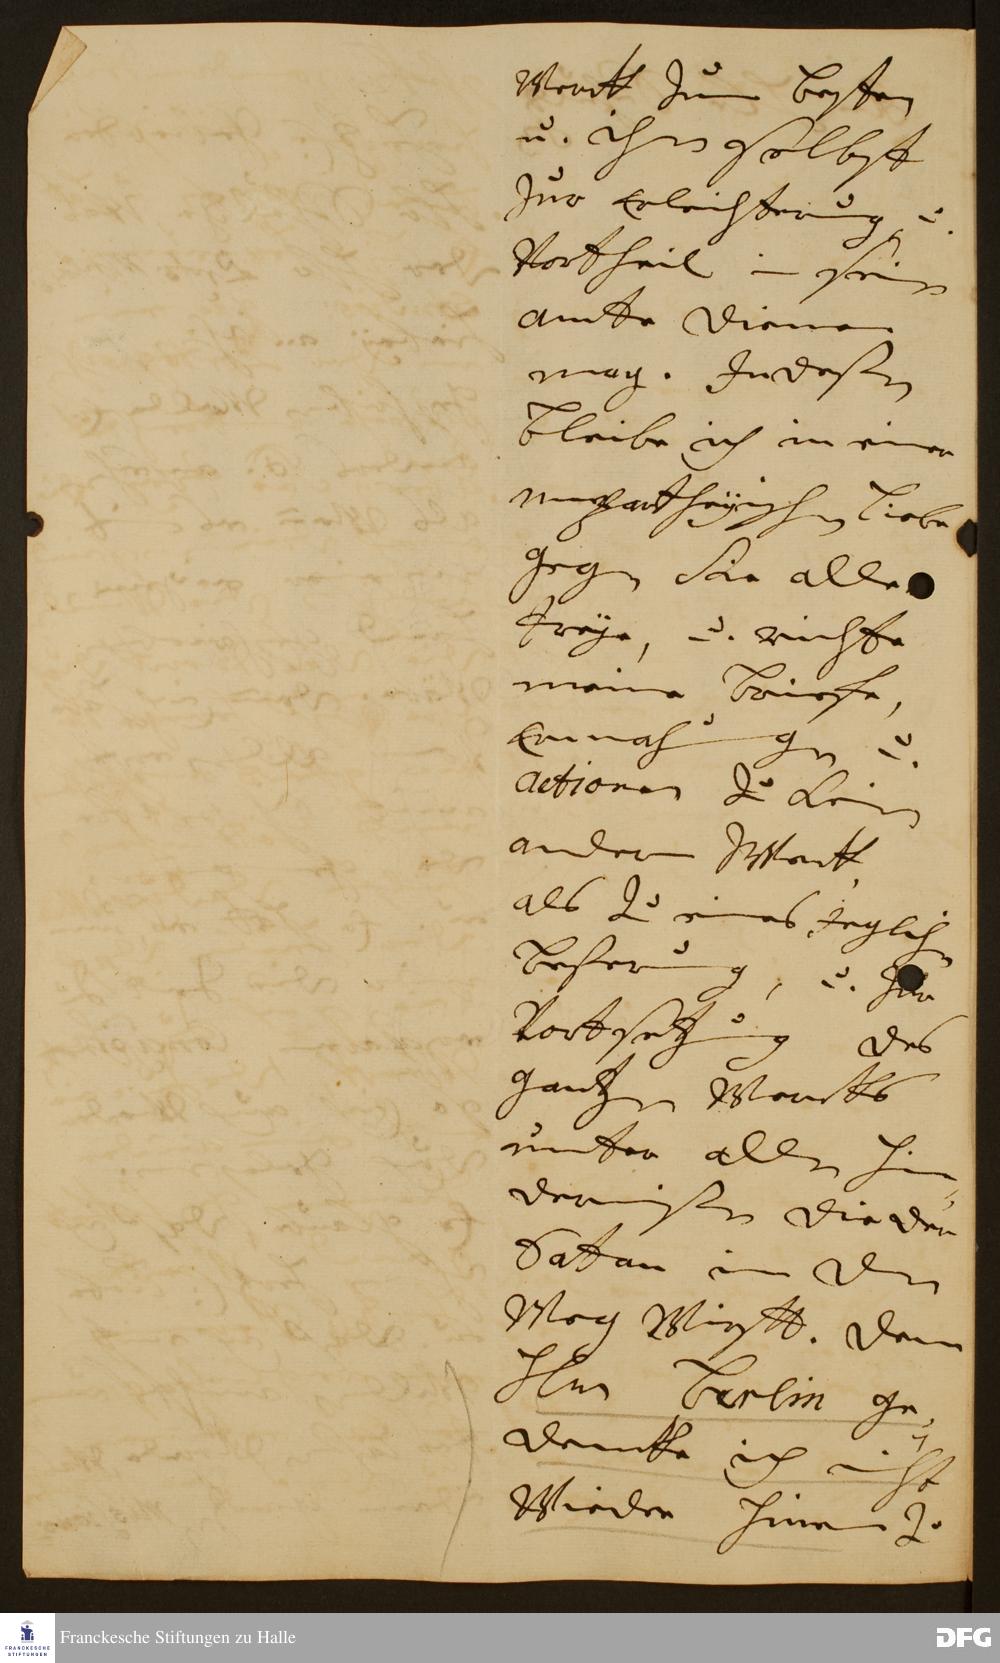 Werck zum besten
u. ihm selbst
zur Erleichterung u.
Vortheil in sein
amte dienen
mag. Indeßen
bleibe ich in einer
unpartheyischen liebe
gegen Sie alle
treÿe, u. richte
meine briefe,
Ermahnungen u.
actionen zu keinem
andern Zweck,
als zu eines jeglichen
beßerung, u. zur
Vortsetzung des
gantzen Wercks
unter allen hin
dernißen die der
Sattan in den
Weg wirfft. Denn
Berlin ge
dencke ich nicht
wieder hinein zu
Franckesche Stiftungen zu Halle
FRANCKESCHE
STIFTUNGEN
DFG